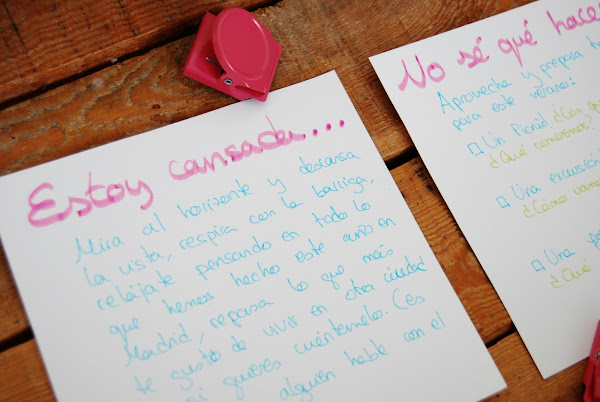 Estoy cansada...
Mira al horizonte y descansa
la vista, respira con la barriga,
relájate pensando en todo lo
que hemos hecho este curso en
Madrid, repasa lo que más
te gustó de vivir en otra ciudad
si quieres cuéntamelo. (es
alguien hable con el
No sé qué hacer
Aprovecha y prepara
para este verano:
□ Un Picnic ¿Con
¿Qué comeremos?
□ Una excursión
¿Cómo vamos
□ Una
¿Qué